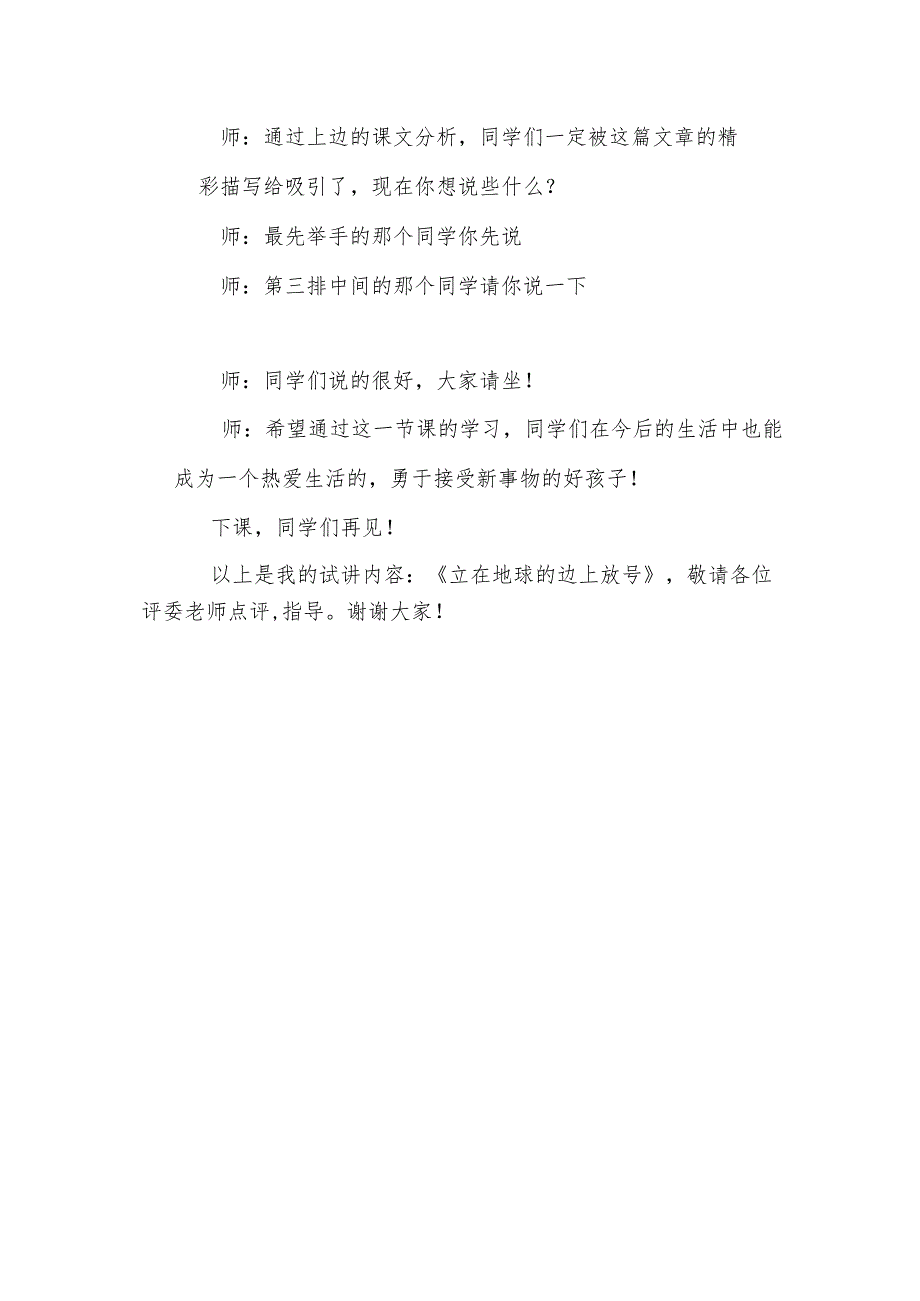 师：通过上边的课文分析，同学们一定被这篇文章的精
彩描写给吸引了，现在你想说些什么？
师：最先举手的那个同学你先说
师：第三排中间的那个同学请你说一下
师：同学们说的很好，大家请坐！
师：希望通过这一节课的学习，同学们在今后的生活中也能
成为一个热爱生活的，勇于接受新事物的好孩子！
下课，同学们再见！
以上是我的试讲内容：《立在地球的边上放号》，敬请各位
评委老师点评,指导。谢谢大家！